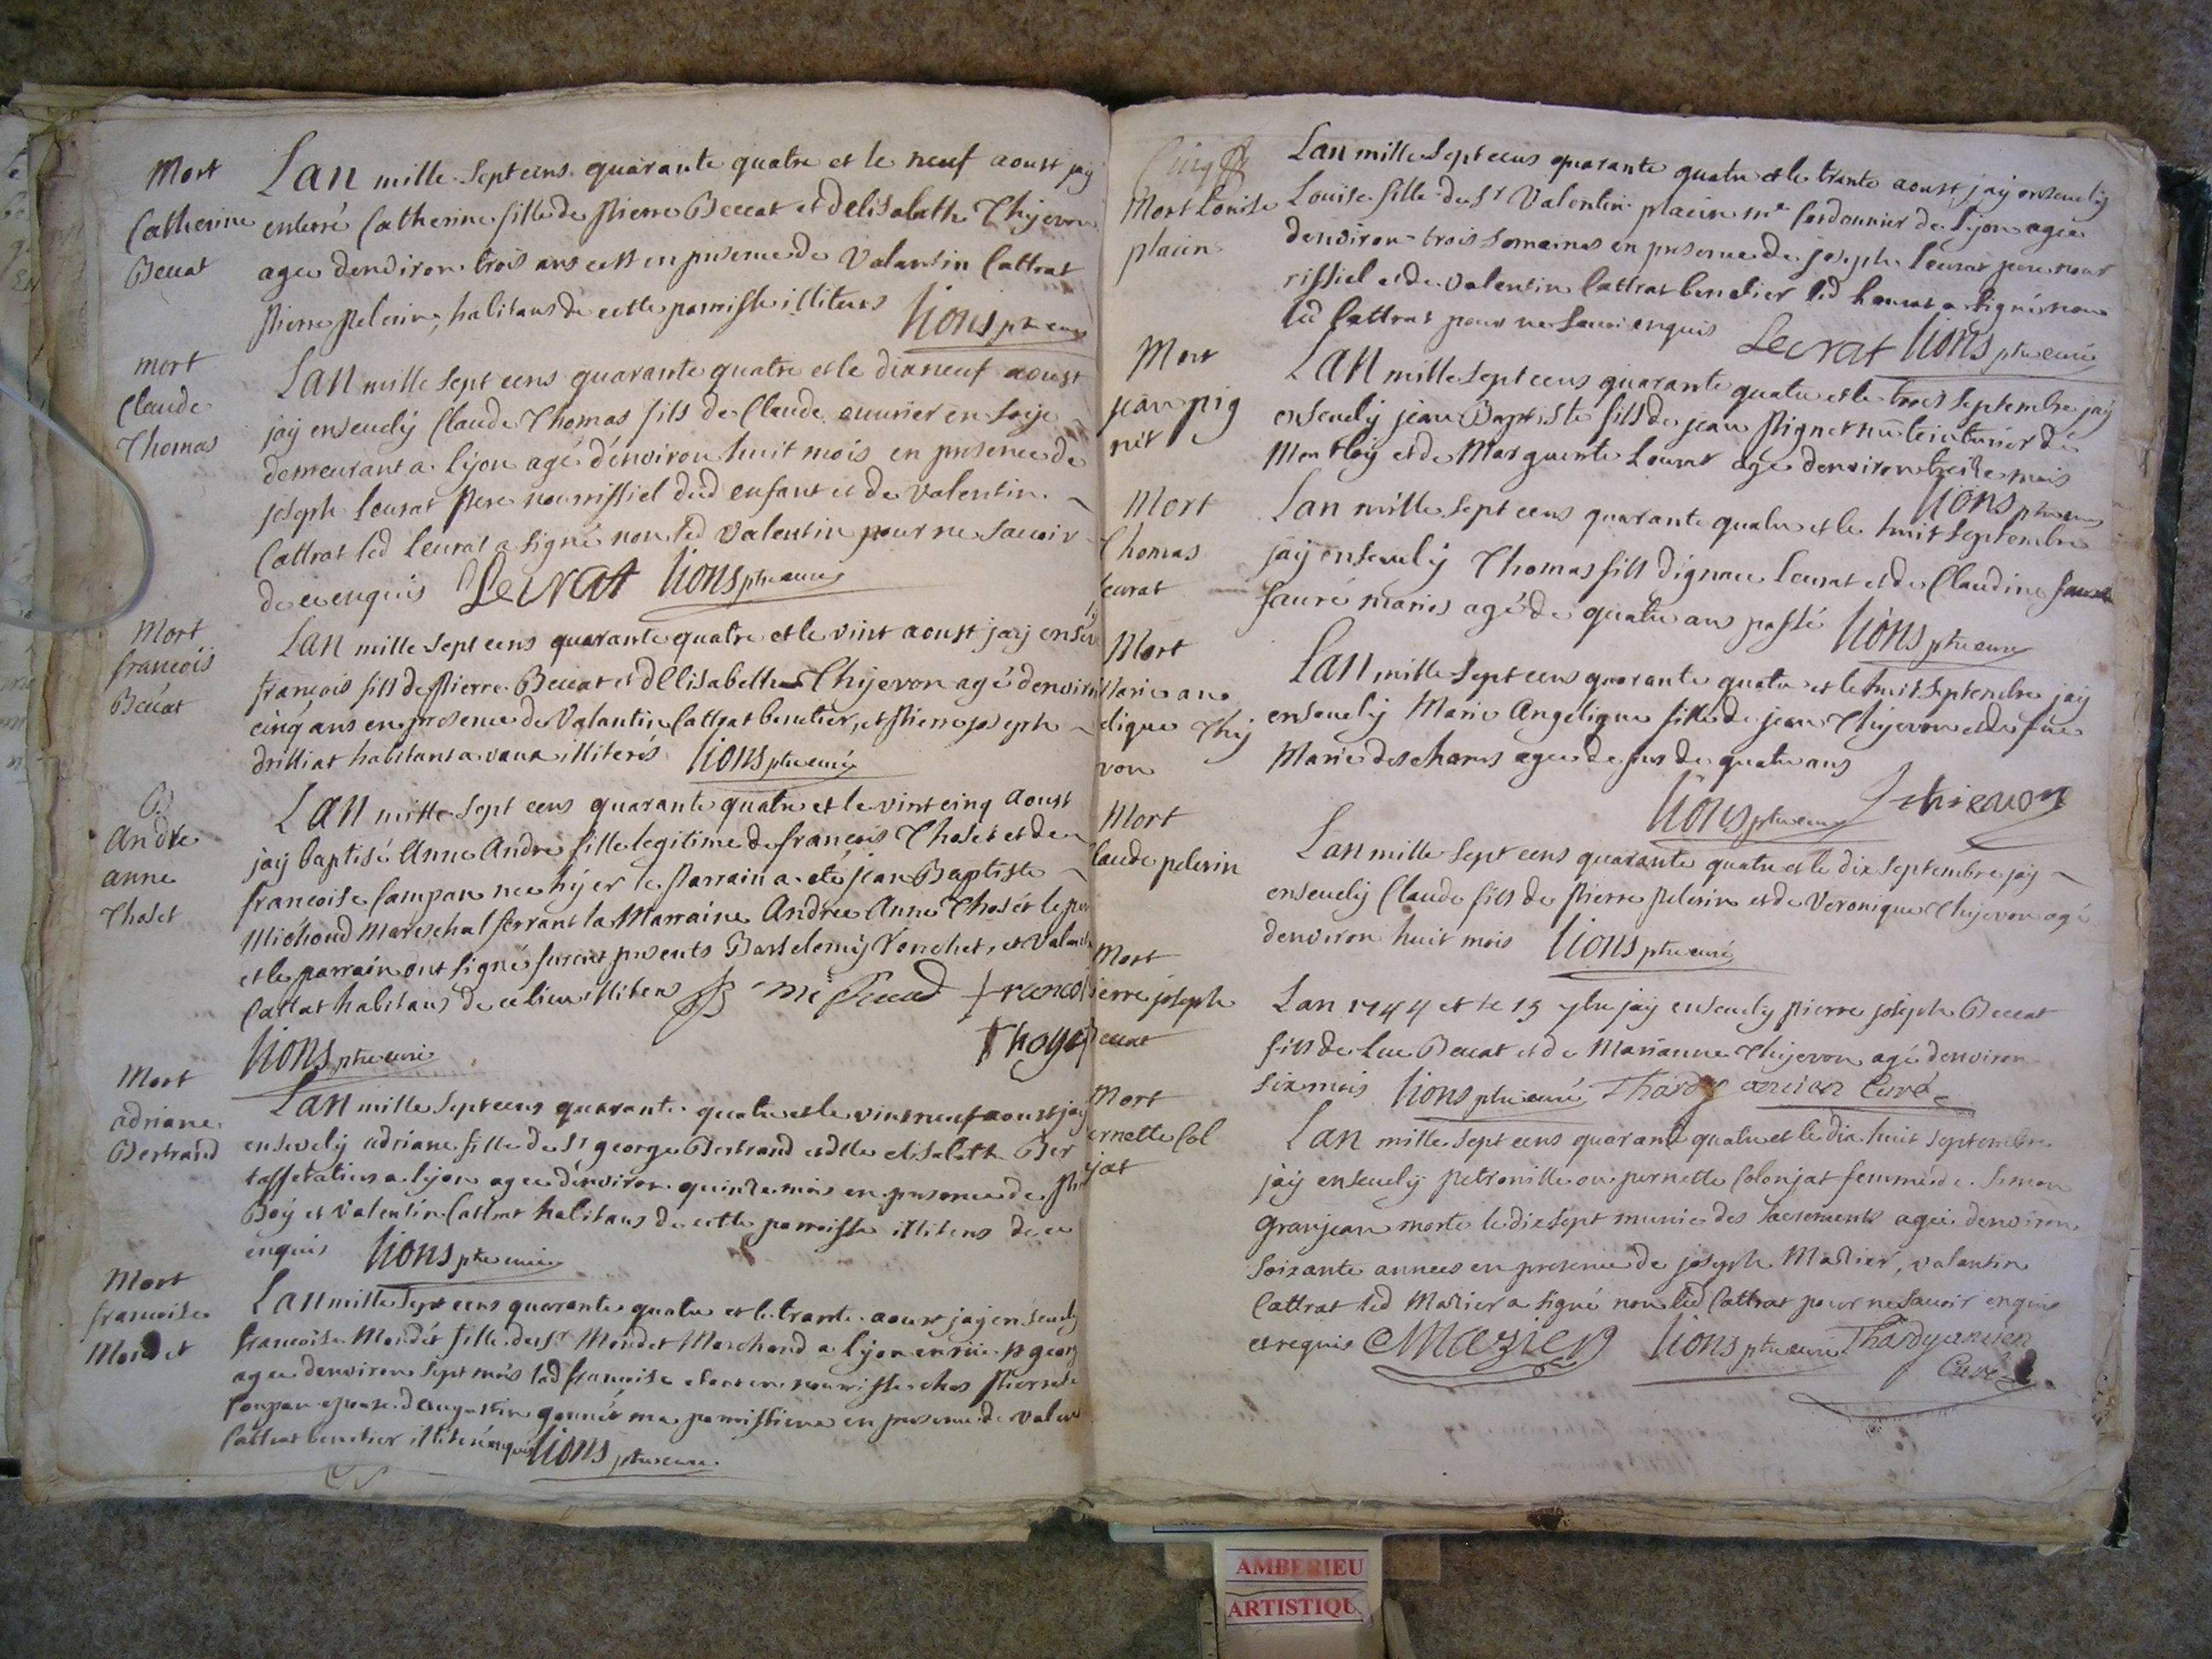 Mort
Catherine
Beccat
Lan mille sept cens quarante quatre et le neuf aoust jay
enterré Catherine fille de pierre Beccat et delisabeth Thijevon
agee denviron trois ans cest en presence de Valantin Cattrat
pierre pelerin, habitans de cette parroisse illiteres Lions ptre curé
mort
Claude
Thomas
Lan mille sept cens quarante quatre et le dixneuf aoust
jaÿ enseuelÿ Claude Thomas fils de Claude ouurier en soye
demeurant a Lÿon agé d'enuiron huit mois en presence de
joseph Leurat pere nourrissiel dud enfant et de valentin
Cattrat led Leurat a signé non led Valentin pour ne sauoir
de ce enquis Leurat Lions ptre curé
Mort
francois
Beccat
Lan mille sept cens quarante quatre et le vint aoust jaÿ enséu
francois fils de pierre Beccat et dElisabethe Thijevon agé denviron
cinq ans en presence de Valantin Cattrat benetier, et pierre joseph
drilliat habitans a vaux illiterés Lions ptre curé
B
Andre
anne
Thoset
Lan mille sept cens quarante quatre et le vint cinq Aoust
jaÿ baptisé Anne Andre fille legitime de francois Thoset et de
francoise Campan nee hÿer le parrain a eté jean Baptiste
Michoud Mareschal ferrant la Marraine Andree Anne Thosét le pere
et le parrain ont signé furent presents Bartelemÿ Vonchet, et Valant
Cattat habitans de ce lieu illiteres JB michoud francois
Lions ptre curé
Mort
adriane
Bertrand
Lan mille sept cens quarante quatre et le vint neuf aoust jay
ensevelÿ adriane fille de Sr george Bertrand et dlle elisabeth Ber
taffetatiers a lÿon agee d'environ quinze mois en presence de
Boÿ et Valentin Cattrat habitans de cette parroisse illiteres de ce
enquis Lions ptre curé
Mort
francoise
Mondet
Lan mille sept cens quarante quatre et le trante aoust jay enseuely
francoise Mondét fille de Sr Mondet Marchand a lÿon en rue St george
agee denviron sept mois lad francoise etant en nourrisse ches pierrete
Coupan epouse daugustin gonnét ma parrissiene en presence de valen
Cattrat benetier illiteré enquis Lions ptre curé
Mort Louise
placin
Lan mille sept cens quarante quatre et le trante aoust jaÿ enseuelÿ
Louise fille de Sr Valentin placin me Cordonnier de Lÿon agee
denviron trois semaines en presence de joseph Leurat pere nour
rissiel et de valentin Cattrat benetier led Leurat a signé non
led Cattrat pour ne sauoir enquis Leurat Lions ptre curé
Mort
jean pig
nét
Lan mille sept cens quarante quatre et le trois septembre jaÿ
enseuelÿ jean Baptiste fils de jean pignet me teinturier de
Montloÿ et de Marguerite Leurat agé denviron treize mois
Lions ptre curé
Mort
Thomas
Leurat
Lan mille sept cens quarante quatre et le huit septembre
jaÿ enseuelÿ Thomas fils dignace Leurat et de Claudine
fauré mariés agé de quatre ans passé Lions ptre curé
Mort
Marie an
elique Thij
von
Lan mille sept cens quarante quatre et le huit septembre jaÿ
enseuelÿ Marie Angelique fille de jean Thijevon et de füe
Marie deschams agee de pres de quatre ans
Lions ptre curé Jthievon
Mort
laude pelerin
Lan mille sept cens quarante quatre et le dix septembre jaÿ
enseuelÿ Claude fils de pierre pelerin et de Veronique Thijevon agé
denviron huit mois Lions ptre curé
Mort
ierre joseph
eccat
Lan 1744 et le 15 7bre jaÿ enseuely pierre joseph Beccat
fils de Luc Beccat et de Marianne Thijevon agé denviron
six mois Lions ptre curé Thardy ancien Curé
Mort
ernette Col
jat
Lan mille sept cens quarante quatre et le dix huit septembre
jaÿ enseuelÿ petronille ou pernette Colonjat femme de Simon
Granjean morte le dix sept munie des sacrements agée denviron
soixante annees en presence de joseph Mazier, valantin
Cattrat led Mazier a signé non led Cattrat pour ne sauoir enquis
et requis Mazier Lions ptre curé Thardy ancien
Curé
AMBERIEU
ARTISTIQU